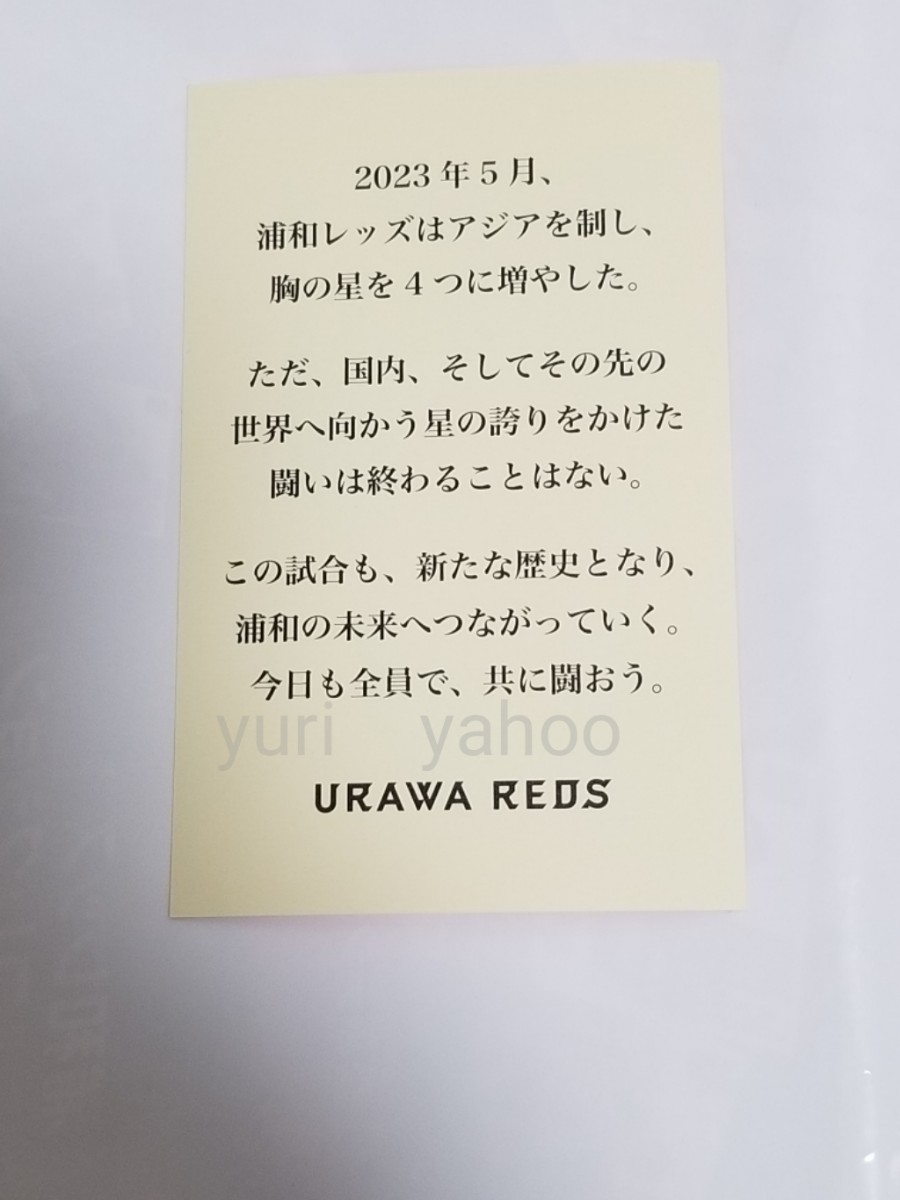 2023年5月、
浦和レッズはアジアを制し、
胸の星を4つに増やした。
ただ、国内、そしてその先の
世界へ向かう星の誇りをかけた
闘いは終わることはない。
この試合も、新たな歴史となり、
浦和の未来へつながっていく。
今日も全員で、共に闘おう。
yuri yahoo
URAWA REDS